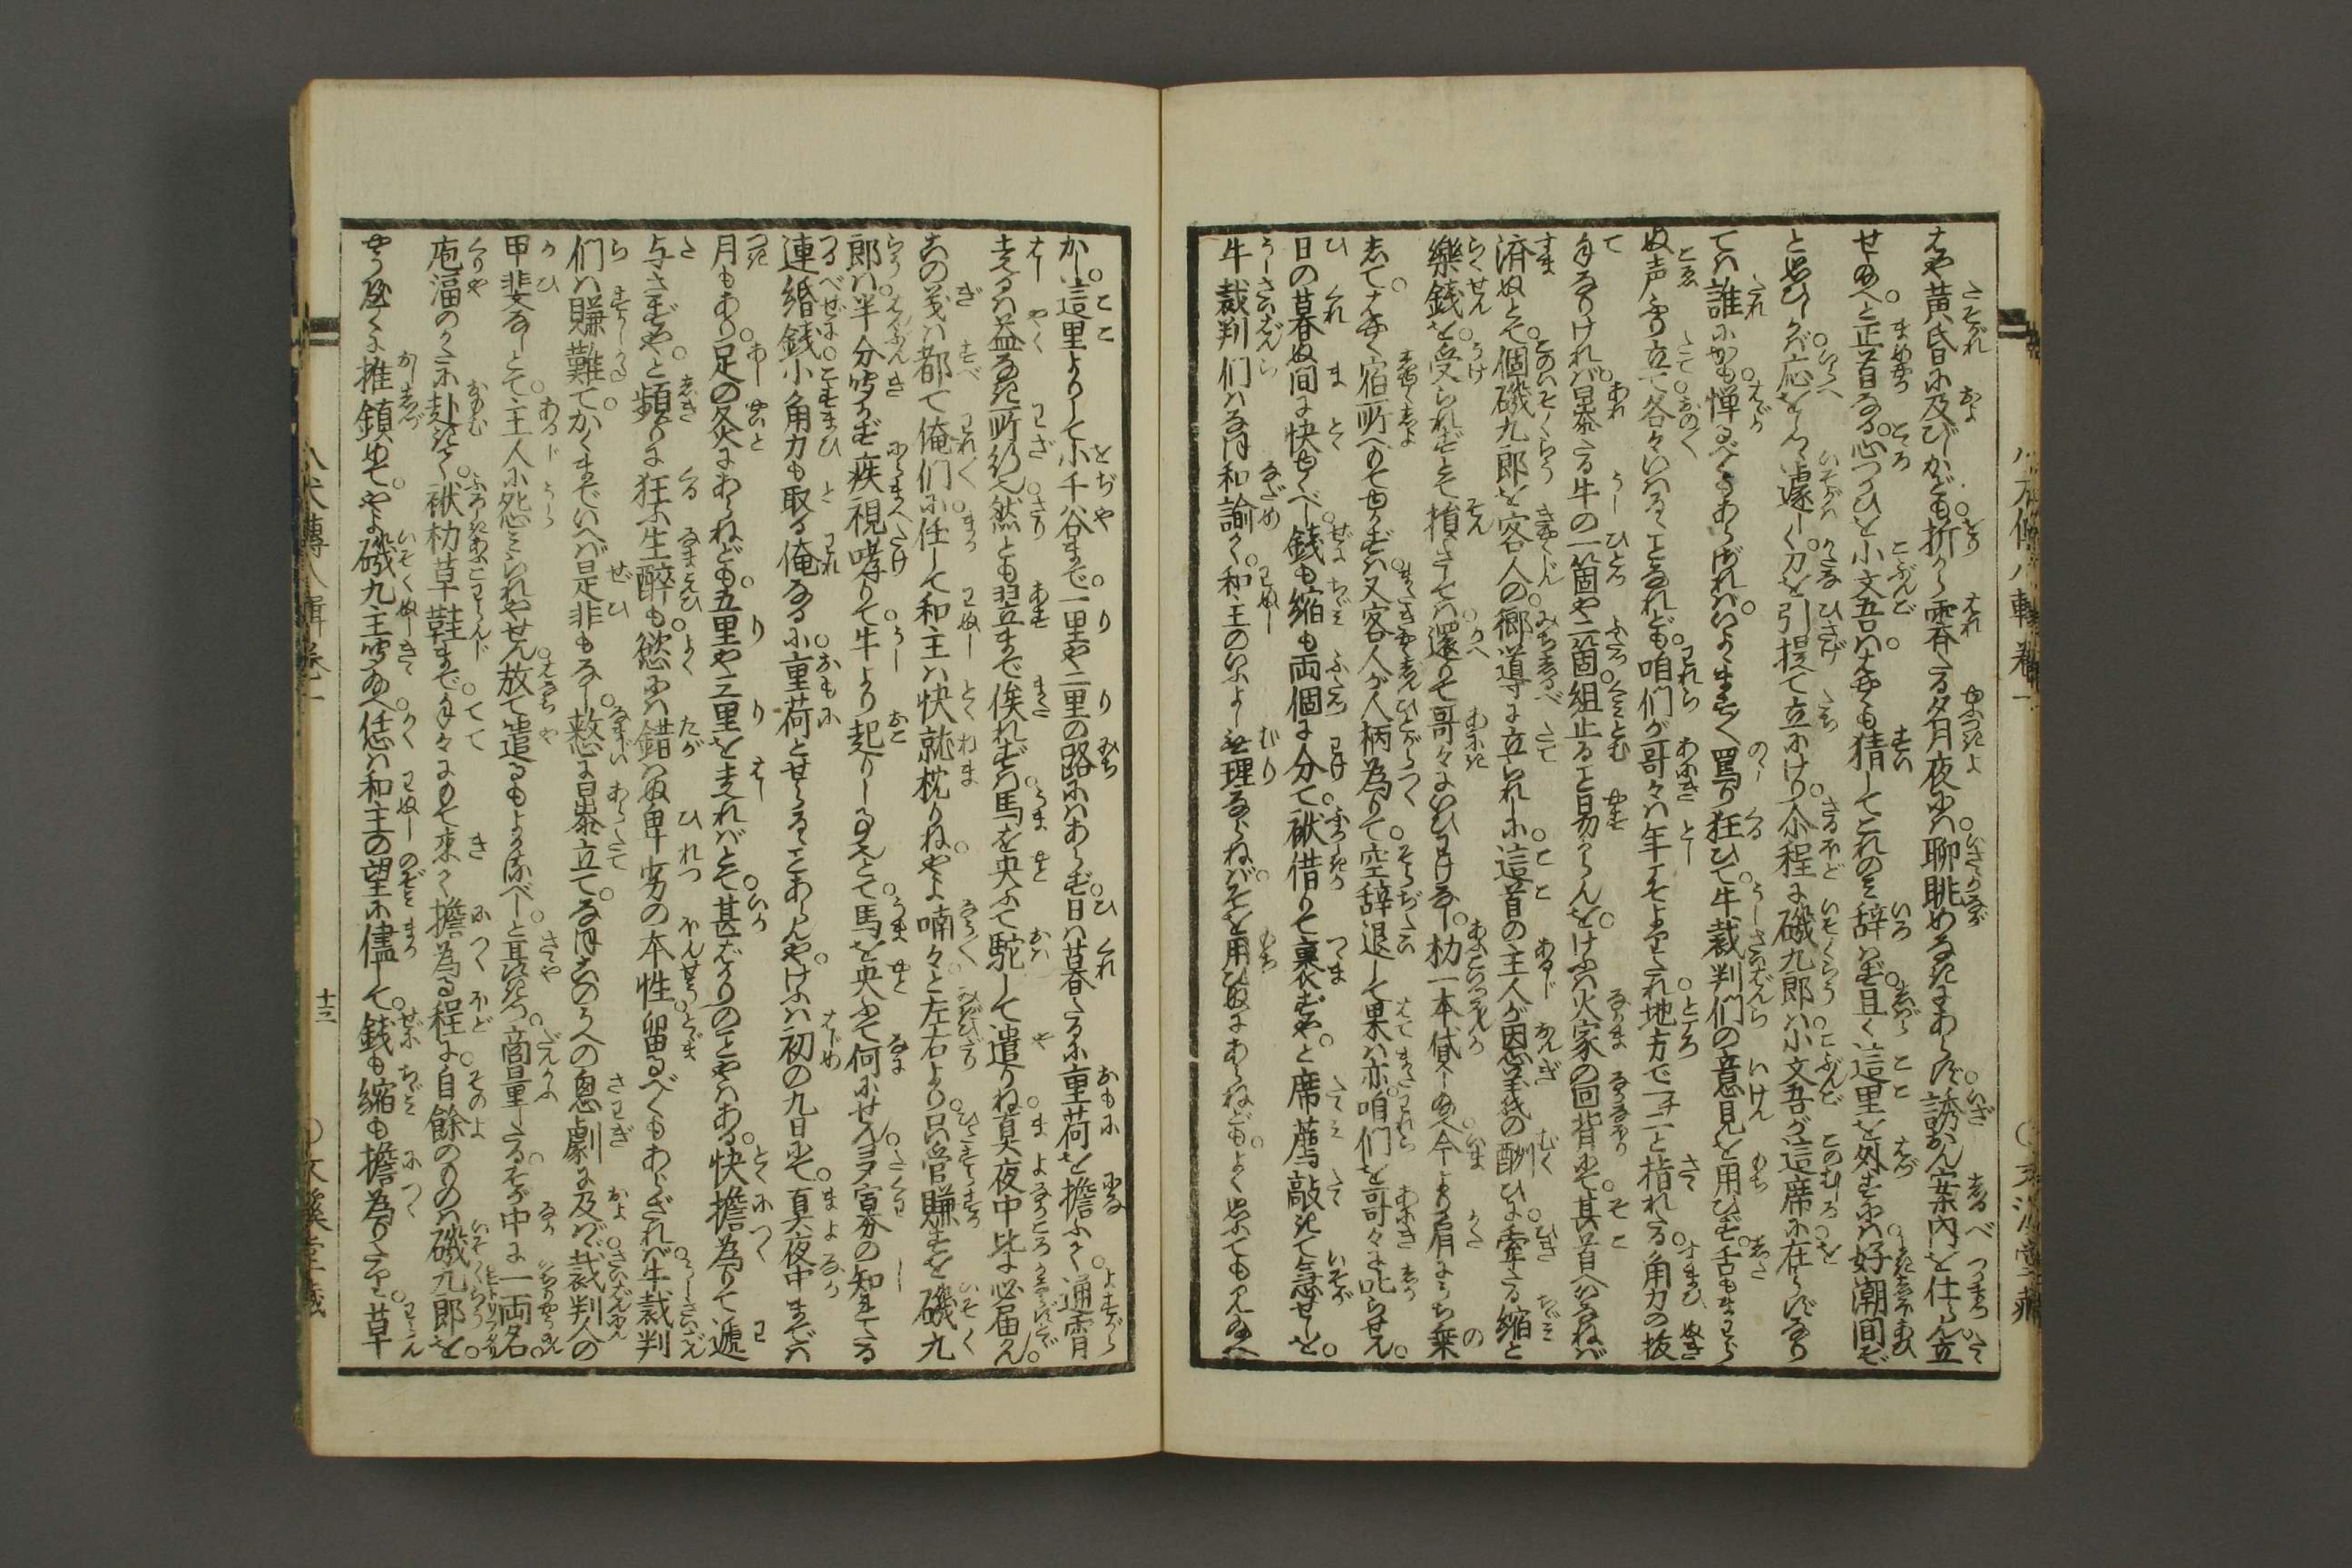 はや黄昏に及びしかども。折から霽たる夕月夜には。聊眺めなきにあらず。誘給へかん案内を仕らん。立
せ給へと正首なる。心つかひを小文吾は。はやくも猜してこれのミ辞はず。且く這里を外さずは。好潮間ぞ
と思ひしかば。応をしつゝ遽しく。刀を引提て立にけり。介程に磯九郎は。小文吾が這席に在らずなり
ては。誰にかも憚るべくもあらざれば。いよゝますます罵り狂ひて。牛裁判们の意見を用ひず。舌もまわら
ぬ声ふり立て。各々いはるゝことなれども。咱们が哥々は年こそよりたれ。地方で一二と指れたる。角力の抜
手なりければ。暴たる牛の一箇や二箇。組止ること易からんを。けふは火家の回背にて。其首へはなねば
済ぬとて。個磯九郎を客人の。郷導に立られしに。這首の主人が恩義の酬ひに。牽たる縮と
樂銭を。受られずとて損さては。還りて哥々にいひわけなし。朸一本貸し給へ。今より肩にうち乗
して。はやく宿所へもてゆかずは。又客人が人柄為りて。空辞退して果は亦。咱们を哥々に叱らせん。
日の暮ぬ間に快ゆくべし。銭も縮も両個に分て。袱借りて裹まずや。と席薦敲きて急せしを。
牛裁判们はなほ和諭く。和主のいふよし無理ならねば。そを用ひぬにあらねども。よく思ふても見給へ
かし。這里よりして小千谷まで。一里や二里の路にはあらず。日は暮たるに重荷を擔ふて。通宵
走るは益なき所行。然とも翌まで俟れずは。馬を央ふて駝して遣りね。真夜中比は必届ん。
その義は都て俺们に。任して和主は快就枕りね。やよ喃々と左右より。只管賺すを磯九
郎は。半分聞かず疾視哮りて。牛より起りし事とて。馬を央ふて何にせん。ヨヲ寡夯の知れたる
連緡銭。小角力も取る俺なるに。重荷とせらるゝことあらんや。けふは初の九日にて。真夜中までは
月もあり。足の灸にあらねども。五里や三里を走ればとて。甚ばかりのことやはある。快擔為りて遞
与さずや。と頻りに狂ふ生酔も。慾には錯はぬ卑劣の本性。留るべくもあらざれば。牛裁判
们は賺難て。かくまでいへば是非もなし。憖に暴立て。なほこのうへの鬼劇に及ば。裁判人の
甲斐なしとて。主人に怨ミられやせん。放て遣るもよかるべし。と耳語き。商量したる。そが中に一両名。
庖湢のかたに赴きて。袱朸草鞋まで。手々にもて来く擔為る程に。自餘のものは磯九郎を。
やうやくに推鎮めて。やよ磯九主聞給へ。恁は和主の望に儘して。銭も縮も擔為りたるに。草
八犬傳八輯巻一
十三
○文溪堂藏